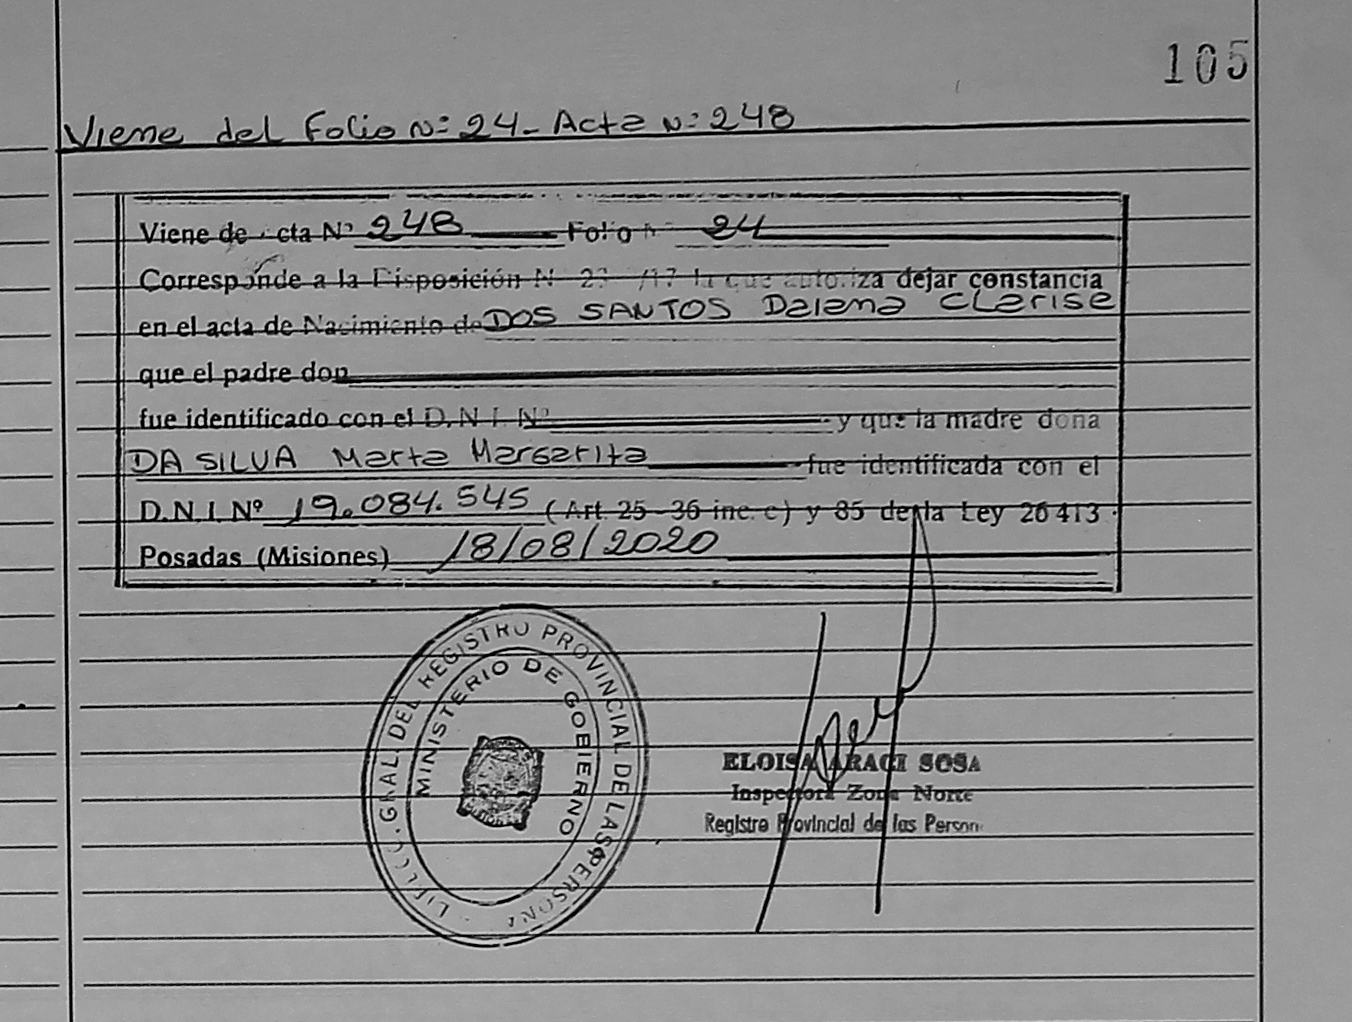 105
Viene del Folio Nº 24 - Acta Nº 248
Viene de cta Nº 248 Folio N 24
Corresponde a la Disposición N la que autoriza dejar constancia
en el acta de Nacimiento de DOS SANTOS Daiana Clarise
que el padre don
fue identificado con el D.N.I. Nº y que la madre doña
DA SILVA Marta Margarita fue identificada con el
D.N.I. Nº 19.084.545 (Art. 25 - 36 inc. c) y 85 de la Ley 26413
Posadas (Misiones) 18/08/2020
GRAL. DEL REGISTRO PROVINCIAL DE LAS PERSONA
MINISTERIO DE GOBIERNO
ELOISA ARACI SOSA
Inspectora Zona Norte
Registro Provincial de las Person